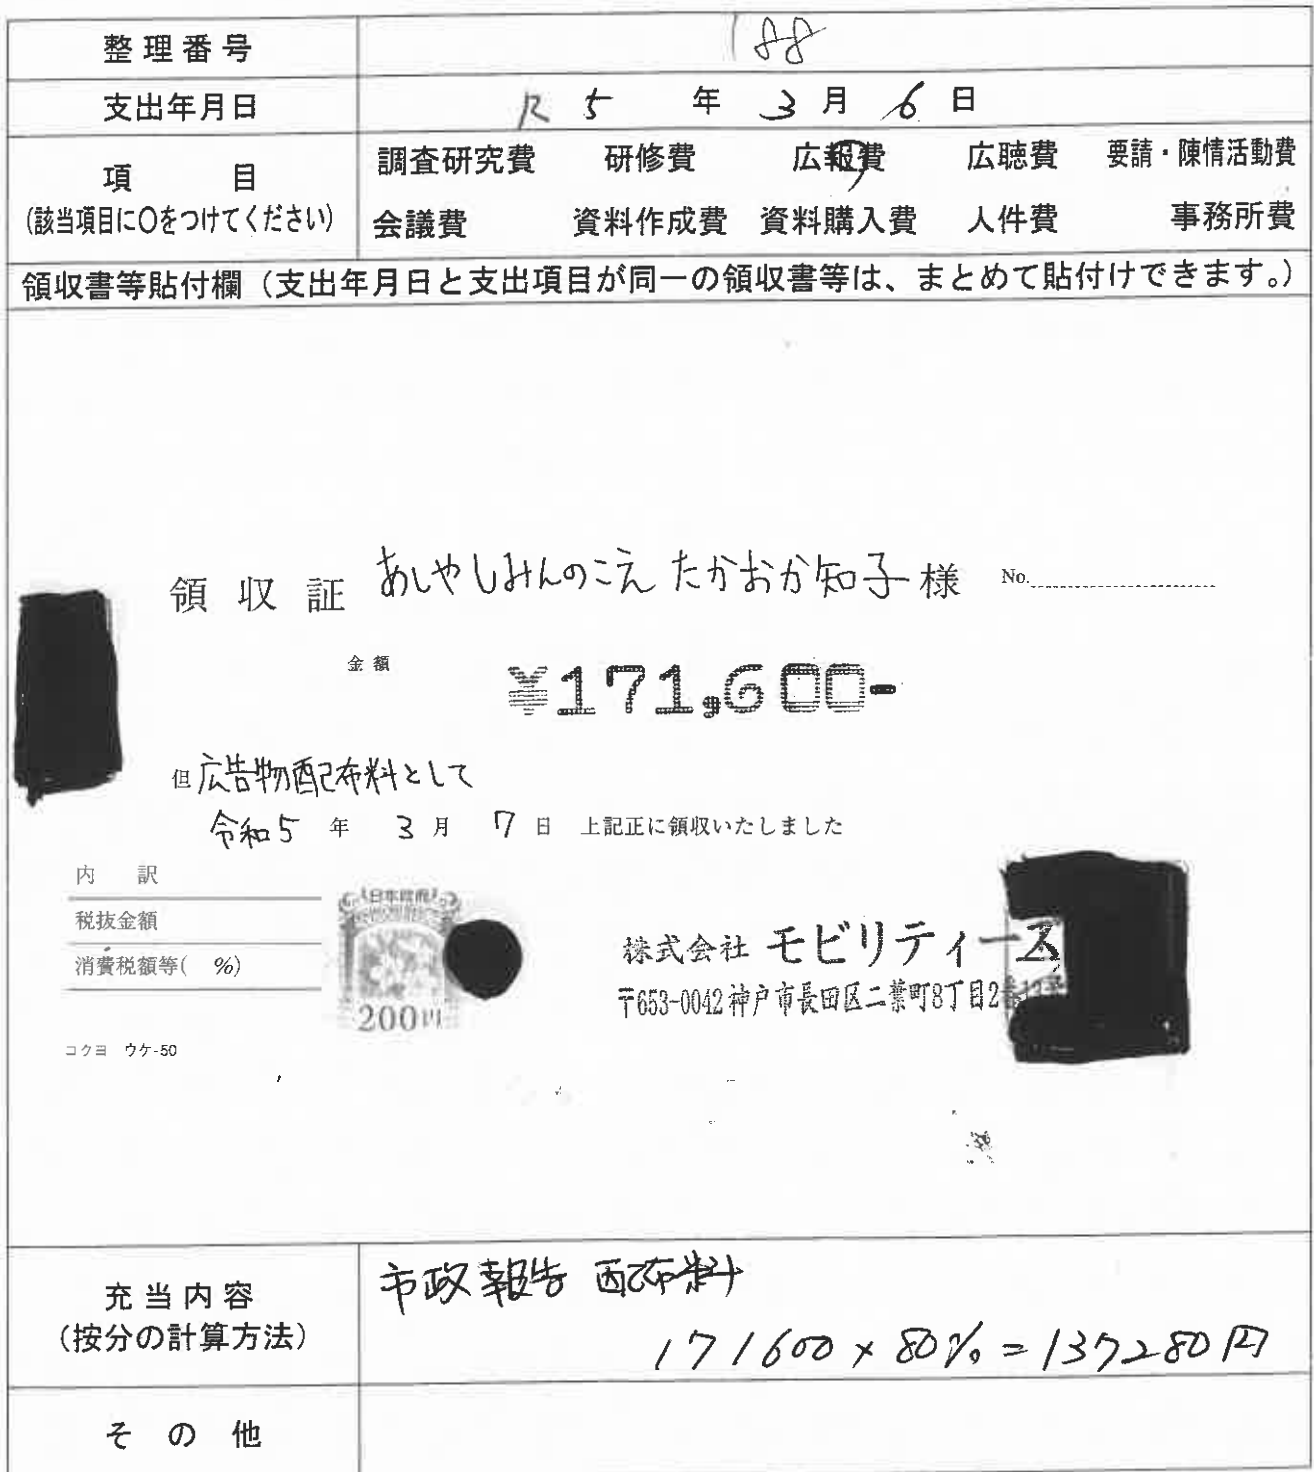 整理番号 188
支出年月日 R5年3月6日
項目 調査研究費 研修費 広報費 広聴費 要請・陳情活動費
(該当項目に〇をつけてください) 会議費 資料作成費 資料購入費 人件費 事務所費
領収書等貼付欄(支出年月日と支出項目が同一の領収書等は、まとめて貼付けできます。)
領収証 あしやしみんのこえ たかおか知子 様 No.
金額 ¥171,600-
但 広告物配布料として
令和5年3月7日 上記正に領収いたしました
内訳
税抜金額
消費税額等( %)
日本政府
200円
株式会社 モビリティース
〒653-0042 神戸市長田区二葉町8丁目2番
コクヨ ウケ-50
充当内容 市政報告 配布料
(按分の計算方法) 171600×80%=137280円
その他